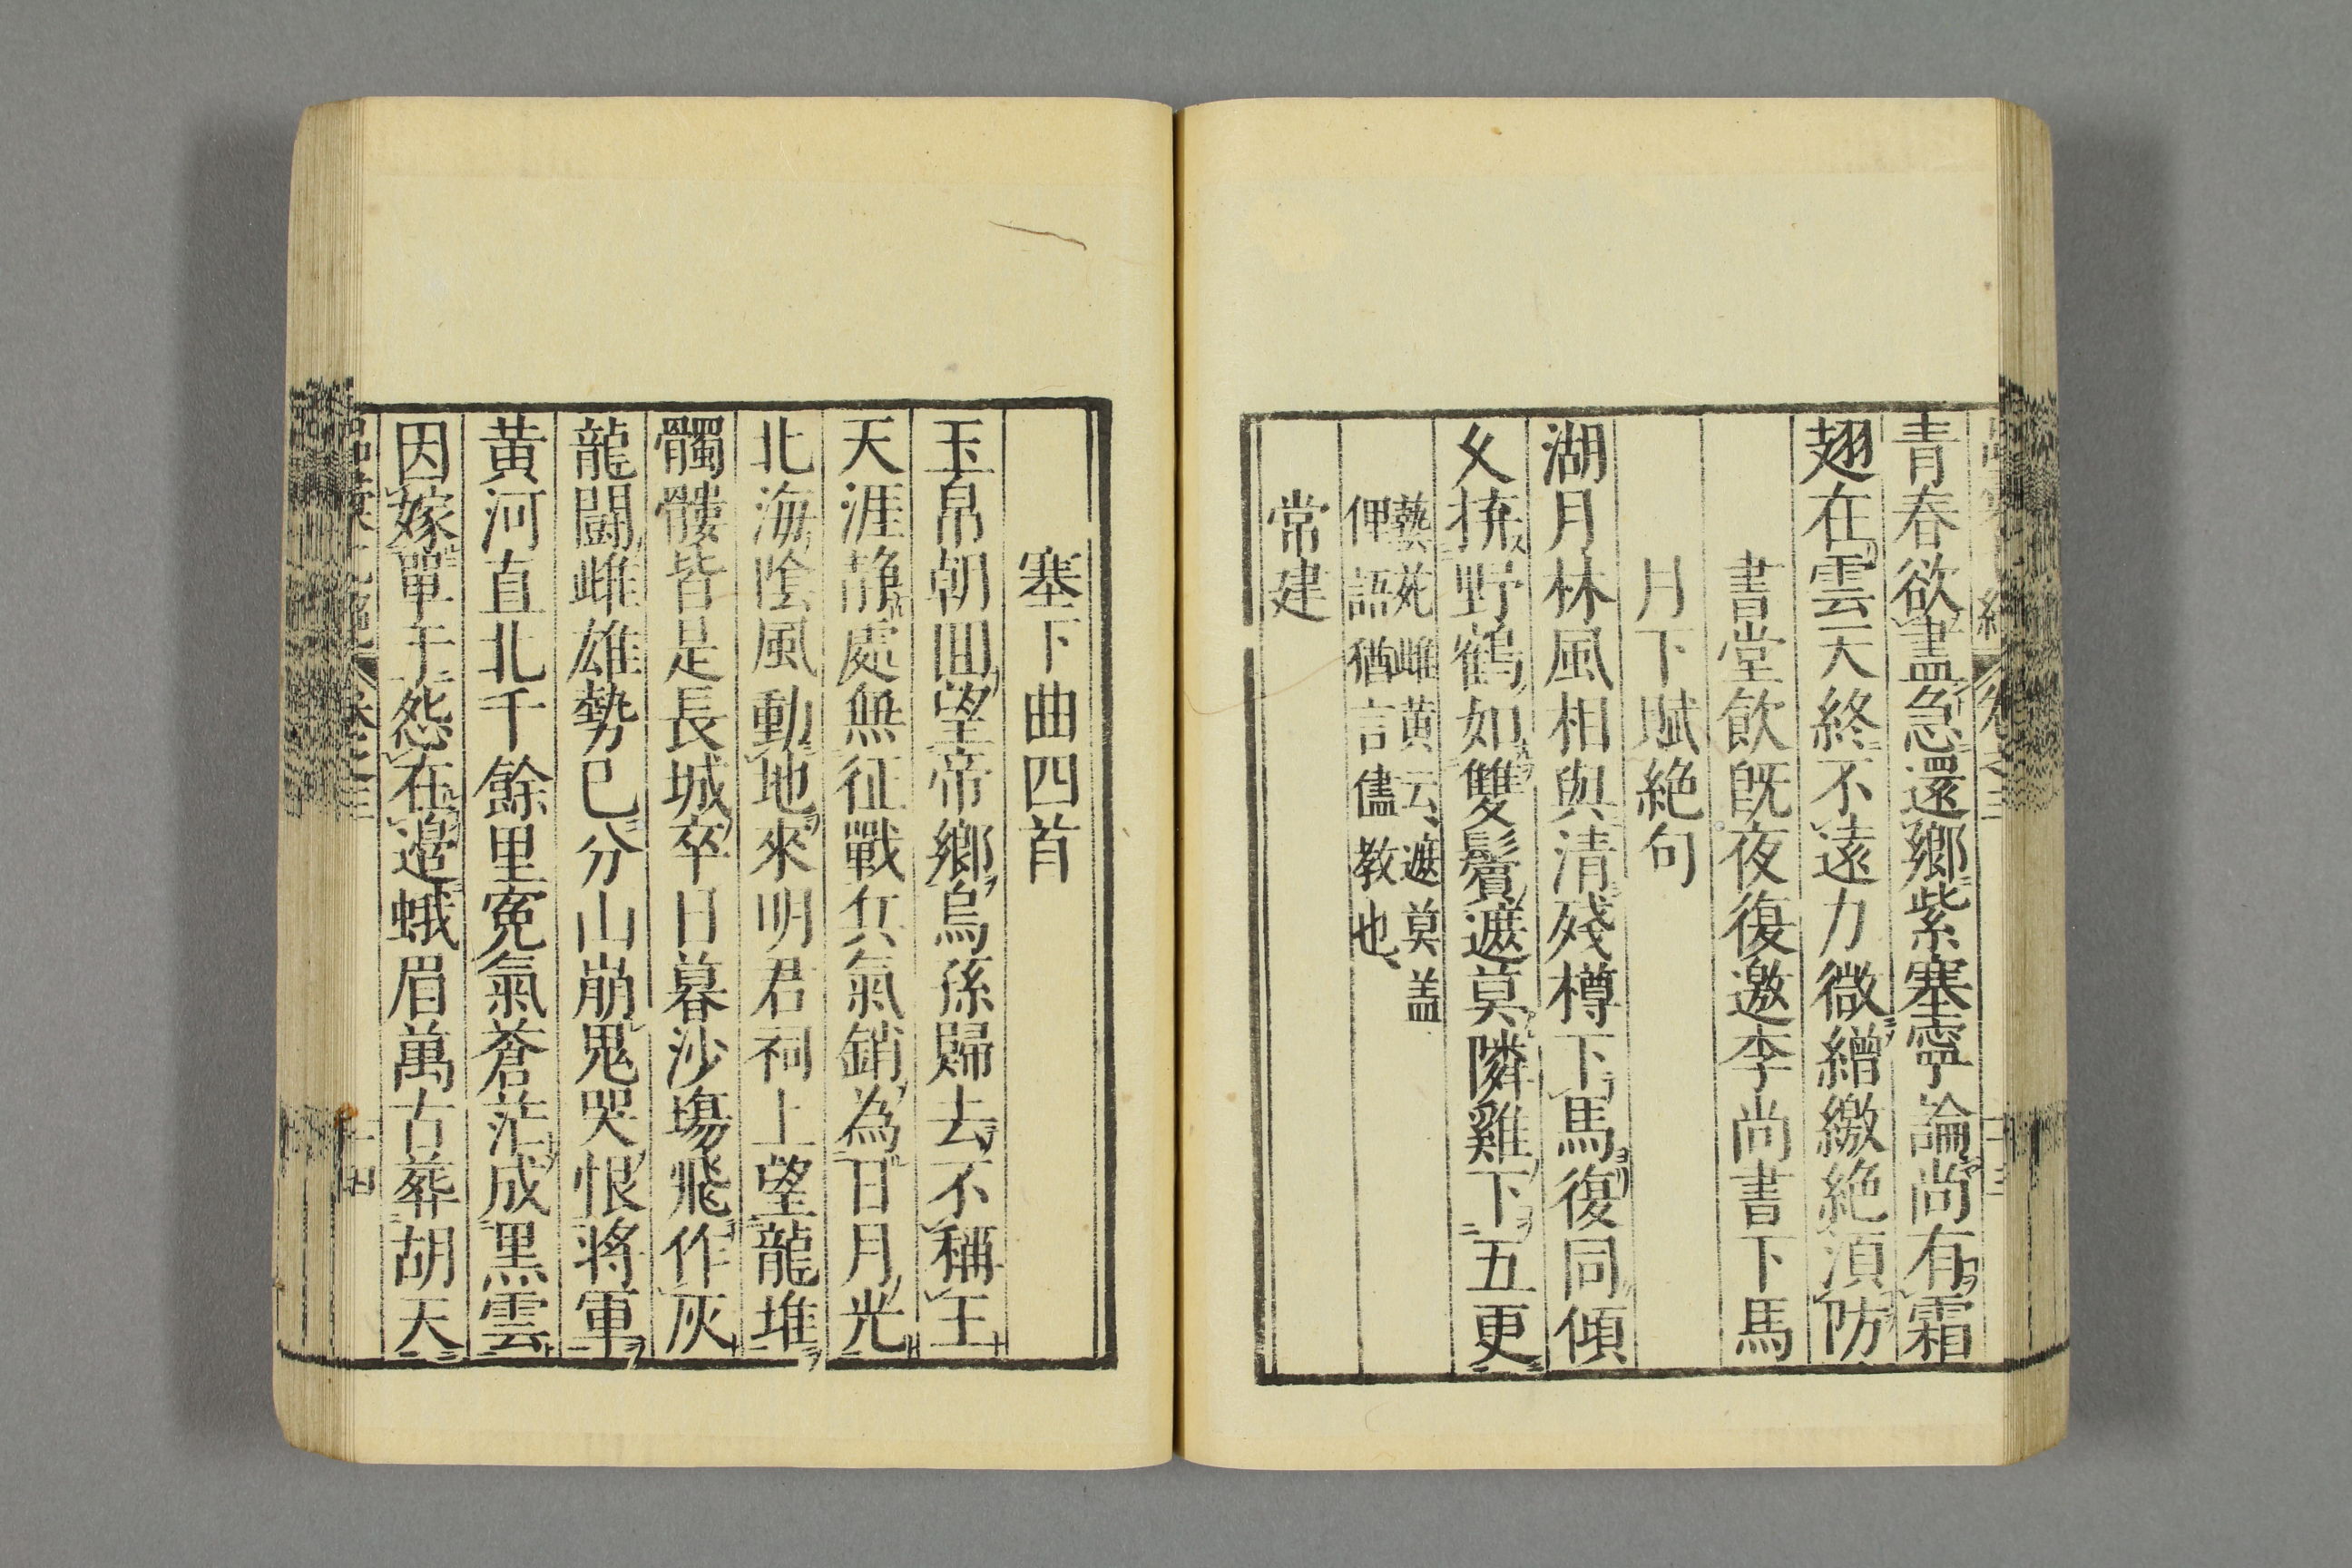 青春欲盡急還鄉紫塞寧論尚有霜
翅在雲天終不遠力微繒繳絶湏防
書堂飲既夜復邀李尚書下馬
月下賦絶句
湖月林風相與清殘樽下馬復同傾
久拚野鶴如雙鬢遮莫隣雞下五更
藝苑雌黄云遮莫盖
俚語猶言儘教也
常建
塞下曲四首
玉帛朝囬望帝鄉烏孫歸去不稱王
天涯静處無征戰兵氣銷為日月光
北海陰風動地來明君祠上望龍堆
髑髏皆是長城卒日暮沙塲飛作灰
龍鬭雌雄勢已分山崩鬼哭恨將軍
黄河直北千餘里寃氣蒼茫成黒雲
因嫁單于怨在邉蛾眉萬古葬胡天